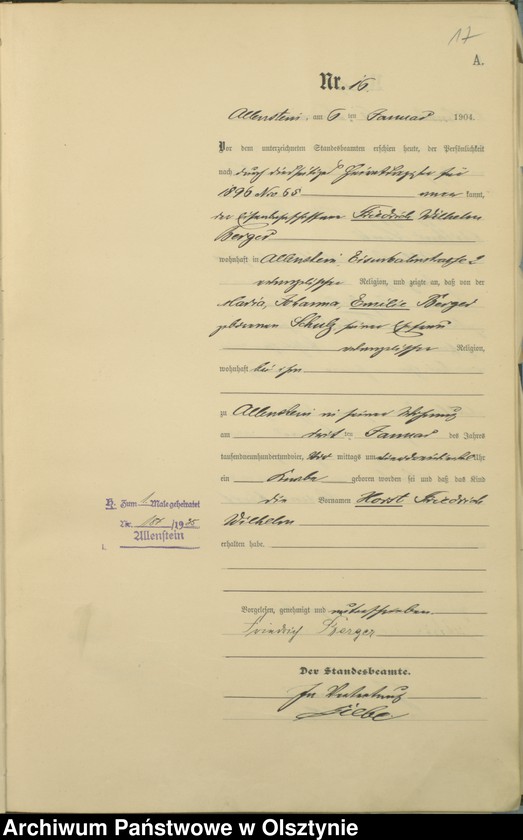 17
A.
Nr. 16
Allenstein, am 6 ten Januar 1904.
Vor dem unterzeichneten Standesbeamten erschien heute, der Persönlichkeit
nach durch
1896 Nro 65 kannt,
der Friedrich Wilhelm
Berger
wohnhaft in Allenstein Eisenbahnstrasse 2
evangelischer Religion, und zeigte an, daß von der
Maria, Johanna, Emilie Berger
geborenen Schulz seiner Ehefrau
evangelischer Religion,
wohnhaft bei ihm
zu Allenstein in seiner Wohnung
am ten Januar des Jahres
tausendneunhundertundvier, mittags um Uhr
ein Knabe geboren worden sei und daß das Kind
die Vornamen Horst Friedrich
Wilhelm
erhalten habe.
H. Zum 1 Male geheiratet
Nr. /1935
Allenstein
Vorgelesen, genehmigt und unterschrieben
Friedrich Berger
Der Standesbeamte.
In Vertretung
Archiwum Państwowe w Olsztynie